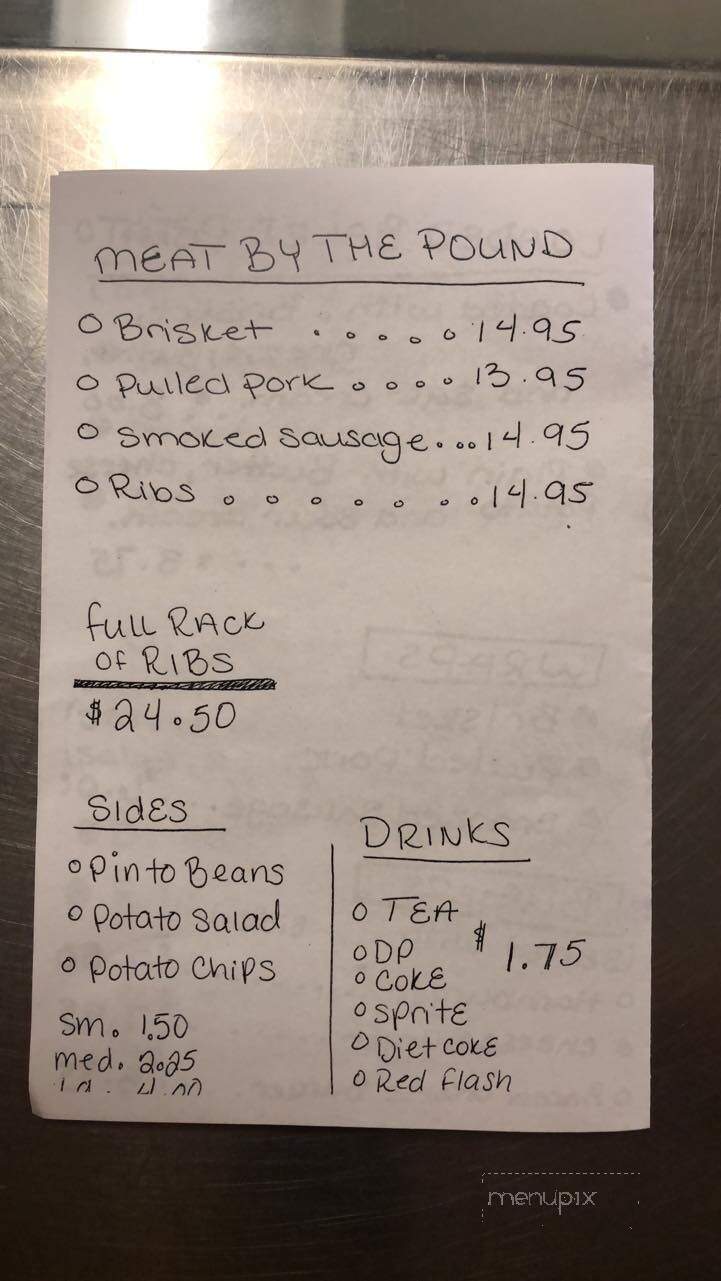 MEAT BY THE POUND
o Brisket . . . . . 14.95
o Pulled pork . . . . 13.95
o Smoked Sausage. . . . 14.95
o Ribs . . . . . . . . 14.95
FULL RACK
OF RIBS
$24.50
SidES
o Pinto Beans
o Potato Salad
o Potato Chips
Sm. 1.50
med. 2.25
DRINKS
o TEA
o DP
$1.75
o COKE
o Sprite
o Diet coke
o Red flash
menupix